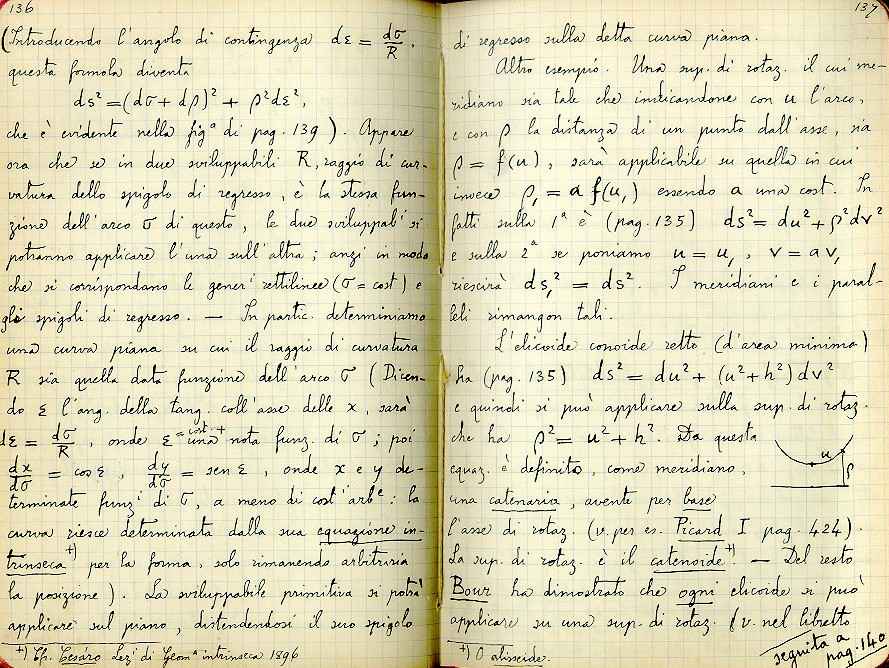 136
(Introducendo l'angolo di contingenza dε = dσ/R,
questa formola diventa
ds² = (dσ + dρ)² + ρ²dε²,
che è evidente nella figª di pag. 139). Appare
ora che se in due sviluppabili R, raggio di cur-
vatura dello spigolo di regresso, è la stessa fun-
zione dell'arco σ di questo, le due sviluppabⁱ si
potranno applicare l'una sull'altra; anzi in modo
che si corrispondano le generⁱ rettilinee (σ = cost) e
gli spigoli di regresso. — In partic. determiniamo
una curva piana su cui il raggio di curvatura
R sia quella data funzione dell'arco σ (Dicen-
do ε l'ang. della tang. coll'asse delle x, sarà
dε = dσ/R, onde ε = cost + una nota funz. di σ; poi
dx/dσ = cos ε, dy/dσ = sen ε, onde x e y de-
terminate funzⁱ di σ, a meno di costⁱ arbᵉ: la
curva riesce determinata dalla sua equazione in-
trinseca +) per la forma, solo rimanendo arbitraria
la posizione). La sviluppabile primitiva si potrà
applicare sul piano, distendendosi il suo spigolo
+) Cfr. Cesáro Lezⁱ di Geomª intrinseca 1896
137
di regresso sulla detta curva piana.
Altro esempio. Una sup. di rotaz. il cui me-
ridiano sia tale che indicandone con u l'arco,
e con ρ la distanza di un punto dall'asse, sia
ρ = f(u), sarà applicabile su quella in cui
invece ρ₁ = a f(u₁) essendo a una cost. In
fatti sulla 1ª è (pag. 135) ds² = du² + ρ²dv²
e sulla 2ª se poniamo u = u₁, v = av₁
riescirà ds₁² = ds². I meridiani e i paral-
leli rimangon tali.
L'elicoide conoide retto (d'area minima)
ha (pag. 135) ds² = du² + (u² + h²)dv²
e quindi si può applicare sulla sup. di rotaz.
che ha ρ² = u² + h². Da questa
equaz. è definito, come meridiano,
u
ρ
una catenaria, avente per base
l'asse di rotaz. (v. per es. Picard I pag. 424).
La sup. di rotaz. è il catenoide +). — Del resto
Bour ha dimostrato che ogni elicoide si può
applicare su una sup. di rotaz. (v. nel libretto
+) O alisseide.
seguita a
pag. 140